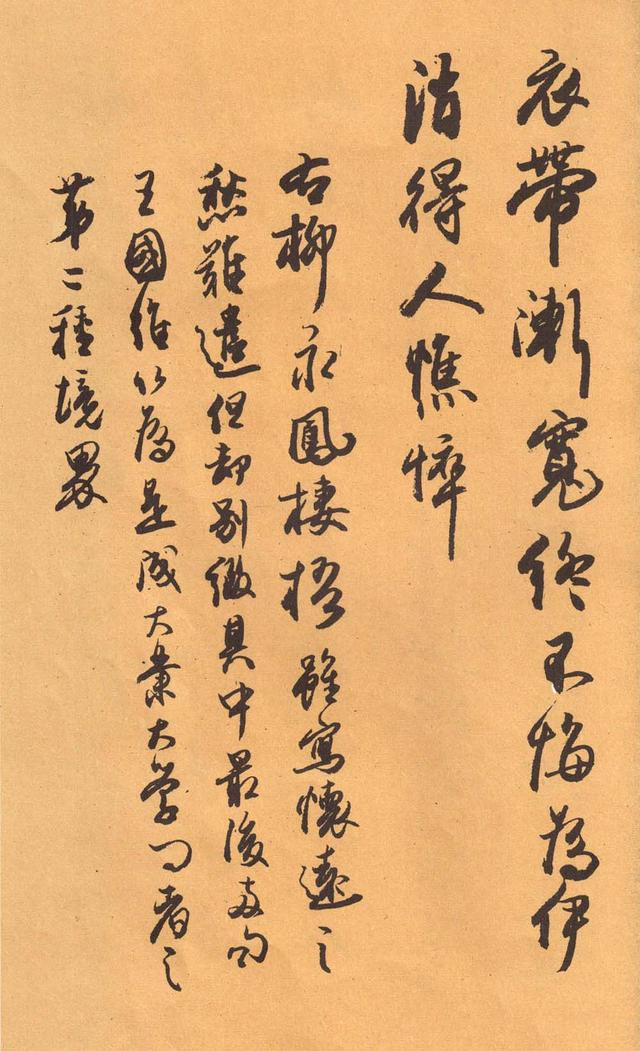 衣帶漸寬終不悔為伊
消得人憔悴
右柳永鳳棲梧雖寫懷遠之
愁難遣但却别緻其中最後两句
王國維以為是成大業大学问者之
第二種境界